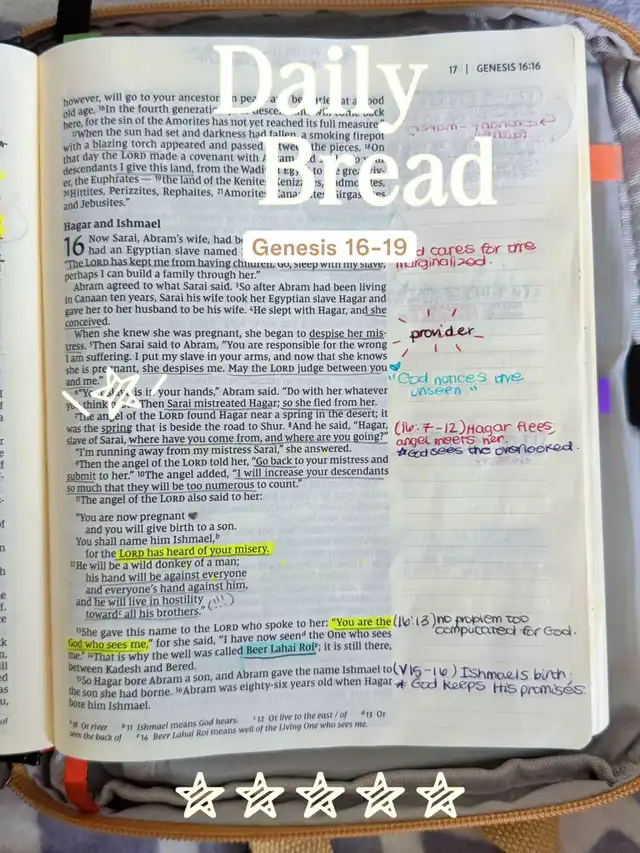 Daily
Bread
Genesis 16-19
17 | GENESIS 16:16
however, will go to your ancestors in
old age. 16In the fourth generation
here, for the sin of the Amorites has not yet reached its full measure."
17When the sun had set and darkness had fallen, a smoking firepot
with a blazing torch appeared and passed between the pieces. 18On
that day the LORD made a covenant with Abram
descendants I give this land, from the Wadi
the Euphrates — 19the land of the Kenites,
20Hittites, Perizzites, Rephaites, 21Amorites,
and Jebusites."
Hagar and Ishmael
16 Now Sarai, Abram's wife, had
had an Egyptian slave named
"The LORD has kept me from having children. Go, sleep with my slave;
perhaps I can build a family through her."
Abram agreed to what Sarai said. 3So after Abram had been living
in Canaan ten years, Sarai his wife took her Egyptian slave Hagar and
gave her to her husband to be his wife. 4He slept with Hagar, and she
conceived.
When she knew she was pregnant, she began to despise her mis-
tress. 5Then Sarai said to Abram, "You are responsible for the wrong
I am suffering. I put my slave in your arms, and now that she knows
she is pregnant, she despises me. May the LORD judge between you
and me."
is in your hands," Abram said. "Do with her whatever
you think Then Sarai mistreated Hagar; so she fled from her.
7The angel of the LORD found Hagar near a spring in the desert; it
was the spring that is beside the road to Shur. 8And he said, "Hagar,
slave of Sarai, where have you come from, and where are you going?"
"I'm running away from my mistress Sarai," she answered.
9Then the angel of the LORD told her, "Go back to your mistress and
submit to her." 10The angel added, "I will increase your descendants
so much that they will be too numerous to count."
11The angel of the LORD also said to her:
"You are now pregnant
and you will give birth to a son.
You shall name him Ishmael,b
for the LORD has heard of your misery.
12He will be a wild donkey of a man;
his hand will be against everyone
and everyone's hand against him,
and he will live in hostility (!!!)
towardc all his brothers."
13She gave this name to the LORD who spoke to her: "You are the
God who sees me," for she said, "I have now seend the One who sees
me." 14That is why the well was called Beer Lahai Roie; it is still there,
between Kadesh and Bered.
15So Hagar bore Abram a son, and Abram gave the name Ishmael to
the son she had borne. 16Abram was eighty-six years old when Hagar
bore him Ishmael.
a18 Or river b11 Ishmael means God hears. c12 Or live to the east / of d13 Or
seen the back of e14 Beer Lahai Roi means well of the Living One who sees me.
cares for the
marginalized.
provider
"God notices the
unseen."
(16:7-12) Hagar flees,
angel meets her.
*God sees the overlooked.
(16:13) no problem too
complicated for God.
(v15-16) Ishmael's birth;
* God keeps His promises.